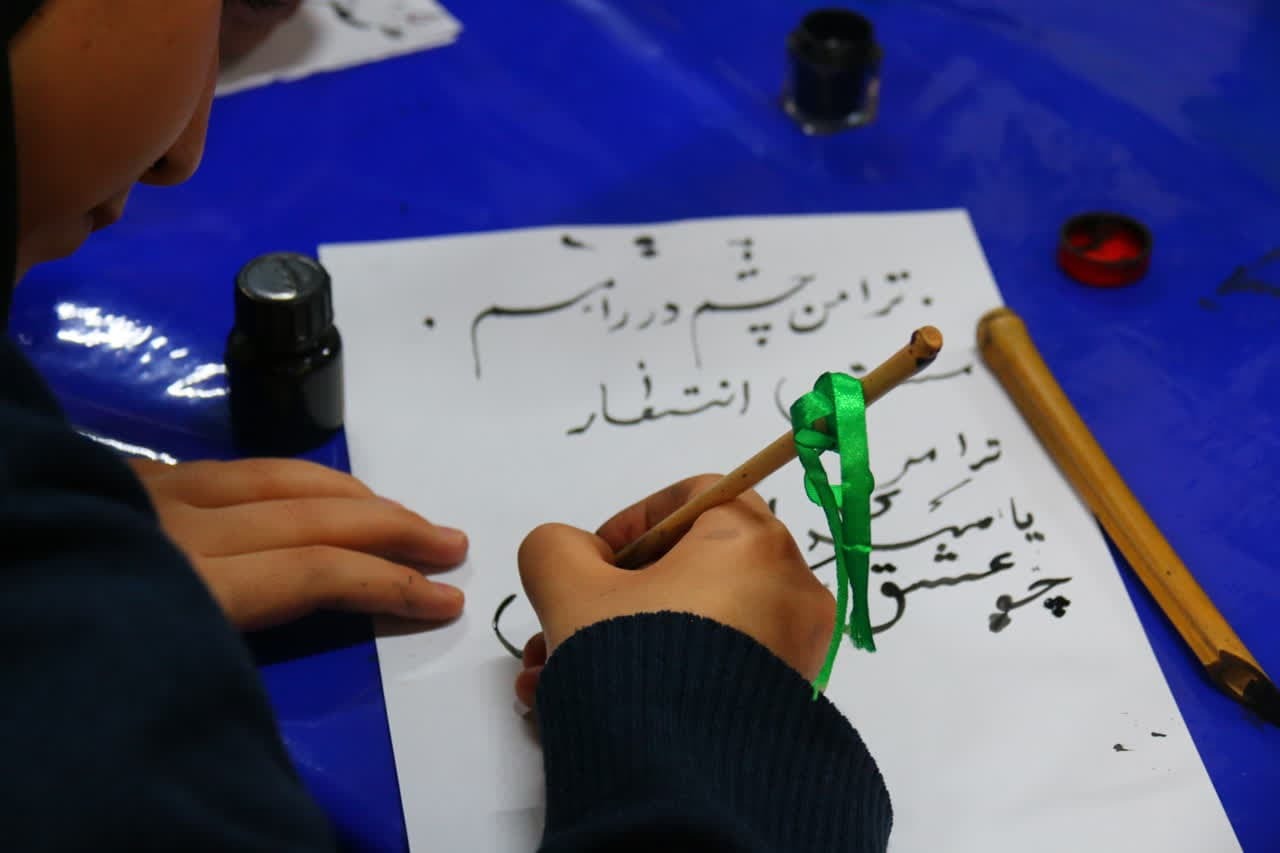 ترا من چشم در راهم
انتظار
ترا من
یا مهدی
چو عشق